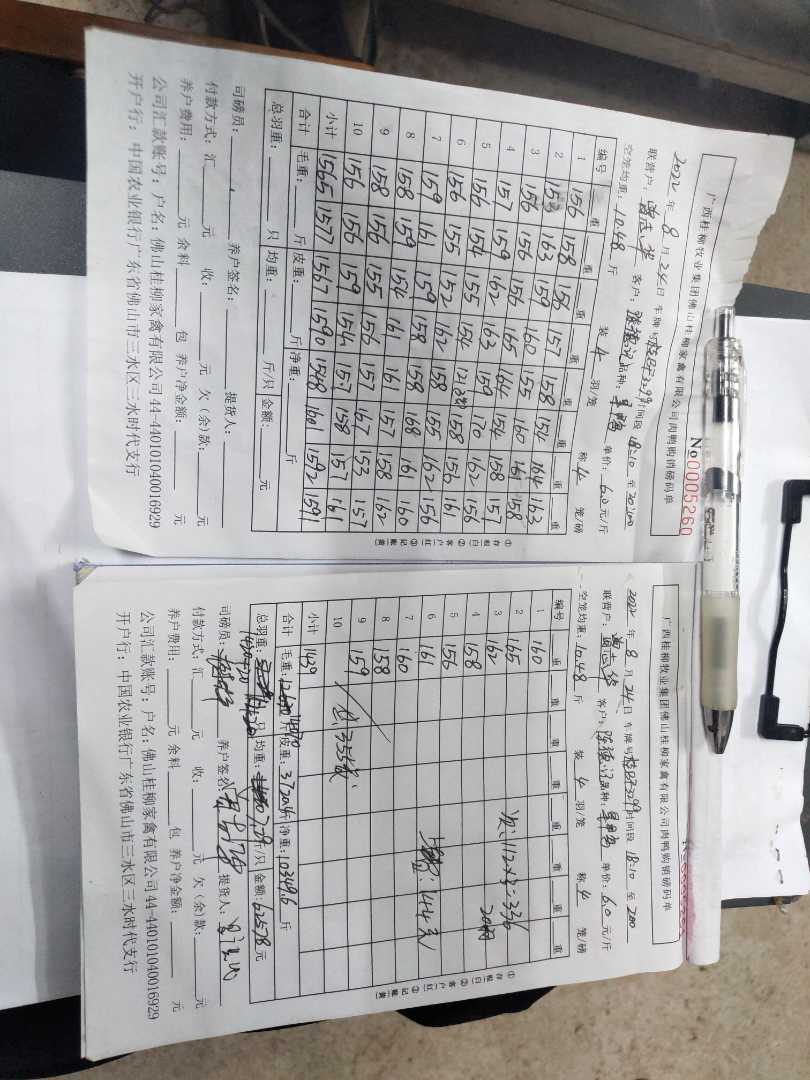 广西桂柳牧业集团佛山桂柳家禽有限公司肉鸭购销磅码单
No0005260
2022年 8月 24日 车牌号 时间段 18:10 至 20:00
联营户: 客户: 品种: 单价: 6.0 元/斤
空笼均重: 10.48 斤 装 4 羽/笼 称 4 笼/磅
编号 重 重 重 重 重 重 重 重
1 156 158 156 157 158 154 164 163
2 153 163 159 160 155 160 161 158
3 156 156 156 165 164 154 158 157
4 157 159 163 159 170 162 156
5 156 154 155 154 121 3只 158 156 161
6 156 155 152 162 158 155 162 156
7 159 161 159 158 158 168 161 160
8 158 159 154 161 161 157 158 162
9 158 156 155 156 157 167 153 157
10 156 156 159 154 157 158 157 161
小计 1565 1577 1567 1590 1548 1601 1592 1591
合计 毛重: 斤 皮重: 斤 净重: 斤
总羽重: 只 均重: 斤/只 金额: 元
司磅员: 养户签名: 提货人:
付款方式:汇 元 收: 元 欠(余)款: 元
养户费用: 元 余料 包 养户净金额: 元
公司汇款账号:户名:佛山桂柳家禽有限公司 44-440101040016929
开户行:中国农业银行广东省佛山市三水区三水时代支行
①存根(白) ②客户(红) ③记账(黄)
广西桂柳牧业集团佛山桂柳家禽有限公司肉鸭购销磅码单
2022年 8月 24日 车牌号 时间段 18:10 至 200
联营户: 客户: 品种: 单价: 6.0 元/斤
空笼均重: 10.48 斤 装 4 羽/笼 称 4 笼/磅
编号 重 重 重 重 重 重 重 重
1 160
2 165
3 162 112×3=336
4 158
5 156
6 161 144
7 160
8 158
9 159
10 355
小计 1439
合计 毛重: 斤 皮重: 3720.4 斤 净重: 10349.6 斤
总羽重: 只 均重: 7.29 斤/只 金额: 62578 元
司磅员: 养户签名: 提货人:
付款方式:汇 元 收: 元 欠(余)款: 元
养户费用: 元 余料 包 养户净金额: 元
公司汇款账号:户名:佛山桂柳家禽有限公司 44-440101040016929
开户行:中国农业银行广东省佛山市三水区三水时代支行
①存根(白) ②客户(红) ③记账(黄)